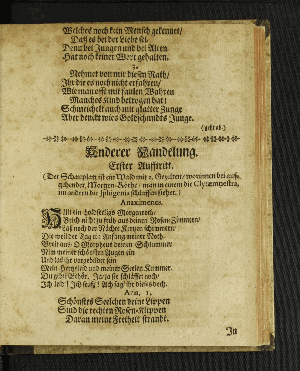 Welches noch kein Mensch gekennet/
Daß es bei der Liebe sei.
Denn bei Jungen und bei Alten
Hat noch keiner Wort gehalten.
3.
Nehmet von mir diesen Rath/
Ihr die es noch nicht erfahren/
Wie man offt mit faulen Wahren
Manches Kind betrogen hat:
Schmeichelt auch mit glatter Zunge
Aber denckt wies Goldschmidts Junge.
(geht ab.)
Anderer Handelung.
Erster Aufftritt.
(Der Schauplatz ist ein Wald mit 2. Gezelten/ worinnen bei aufgehender
Morgen-Röthe/ man in einem die Clytemnestra,
im andern die Iphigenia schlaffen siehet.)
Anaximenes.
holdseeliges Morgenroth/
nicht zu früh aus deinen Rosen-Zimmern/
Laß noch der Nächte Kertzen schimmern/
Die weil der Tag
O Morpheus deinen Schlummer
meiner schläffrigen Augen ein
Und laß ihr vorgebildet sein
Mein Hertzeleid und meiner Seelen Kummer.
sie schläffet noch/
Ich leid! Ich seuff! Ach
Aria. 1.
Schönstes Seelchen deine Lippen
Sind die rechten Rosen-Klippen
Daran meine Freiheit strandt.
In